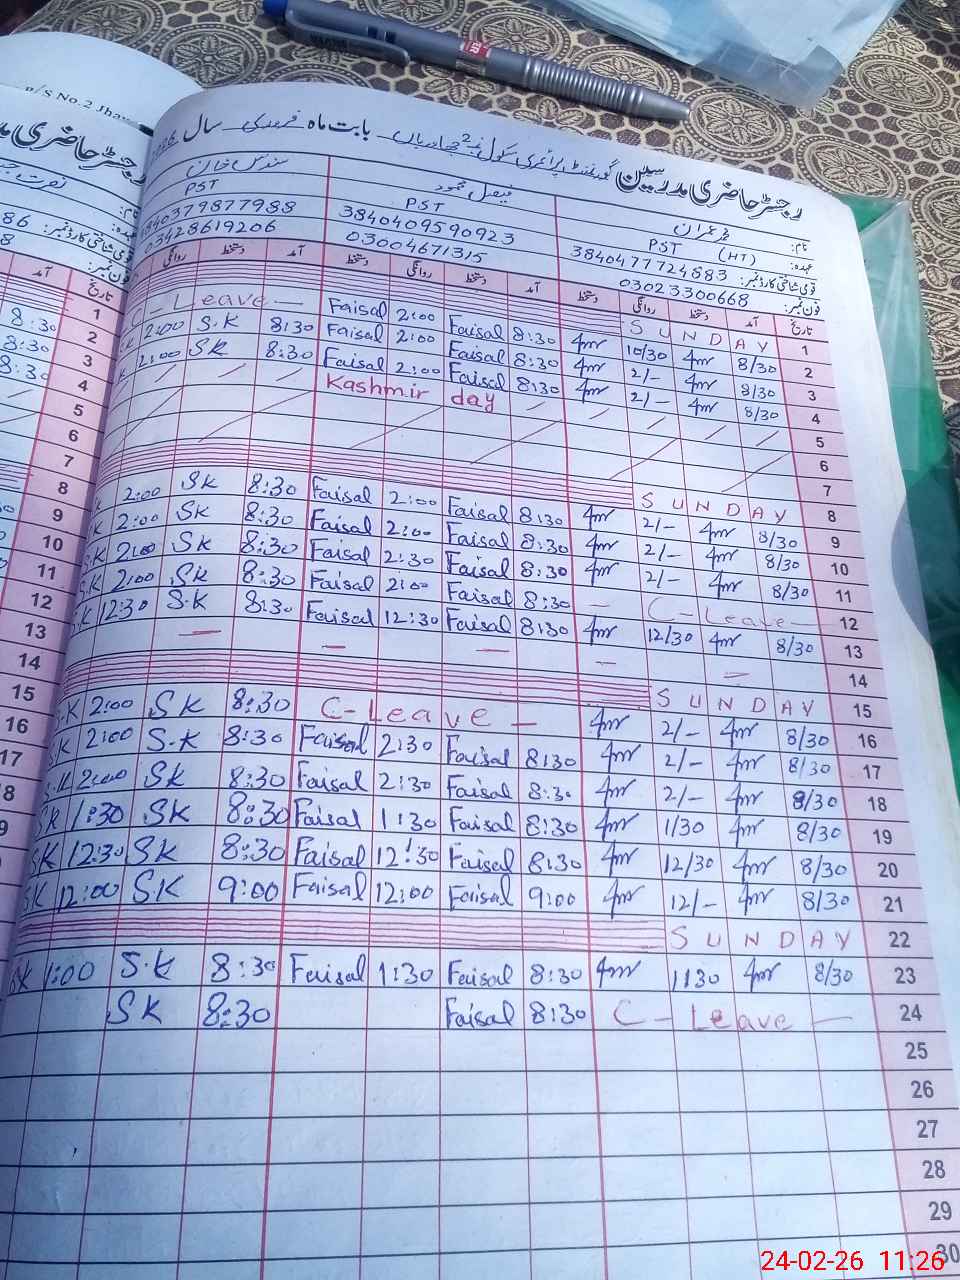 رجسٹر حاضری مدرسین گورنمنٹ پرائمری سکول نمبر 2 جھاوریاں بابت ماہ فروری سال 2026
P/S No.2 Jha
رجسٹر حاضری مد
نام: محمد عمران فیصل محمود سندس خان
عہدہ: PST (HT) PST PST
قومی شناختی کارڈ نمبر: 3840477724883 3840409590923 3840379877988
فون نمبر: 03023300668 03004671315 03428619206
تاریخ آمد دستخط روانگی دستخط آمد دستخط روانگی دستخط آمد دستخط روانگی
SUNDAY 1
C-Leave- Faisal 2:00 Faisal 8:30 4mr 10/30 4mr 8/30 2
2:00 S.K 8:30 Faisal 2:00 Faisal 8:30 4mr 2/- 4mr 8/30 3
2:00 SK 8:30 Faisal 2:00 Faisal 8:30 4mr 2/- 4mr 8/30 4
Kashmir day 5
6
7
SUNDAY 8
2:00 SK 8:30 Faisal 2:00 Faisal 8:30 4mr 2/- 4mr 8/30 9
SK 2:00 SK 8:30 Faisal 2:00 Faisal 8:30 4mr 2/- 4mr 8/30 10
SK 2:00 SK 8:30 Faisal 2:30 Faisal 8:30 4mr 2/- 4mr 8/30 11
S.K 2:00 SK 8:30 Faisal 2:00 Faisal 8:30 - C-Leave- 12
S.K 12:30 S.K 8:30 Faisal 12:30 Faisal 8:30 4mr 12/30 4mr 8/30 13
14
SUNDAY 15
S.K 2:00 SK 8:30 C-Leave- 4mr 2/- 4mr 8/30 16
SK 2:00 S.K 8:30 Faisal 2:30 Faisal 8:30 4mr 2/- 4mr 8/30 17
S.K 2:00 SK 8:30 Faisal 2:30 Faisal 8:30 4mr 2/- 4mr 8/30 18
SK 1:30 SK 8:30 Faisal 1:30 Faisal 8:30 4mr 1/30 4mr 8/30 19
SK 12:30 SK 8:30 Faisal 12:30 Faisal 8:30 4mr 12/30 4mr 8/30 20
SK 12:00 SK 9:00 Faisal 12:00 Faisal 9:00 4mr 12/- 4mr 8/30 21
SUNDAY 22
SK 1:00 S.K 8:30 Faisal 1:30 Faisal 8:30 4mr 1130 4mr 8/30 23
SK 8:30 Faisal 8:30 C-Leave- 24
25
26
27
28
29
30
24-02-26 11:26